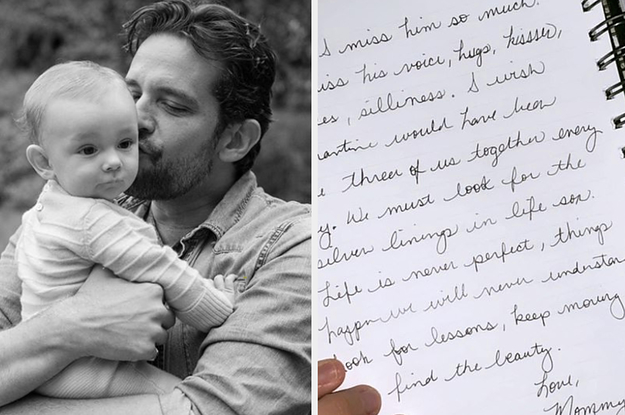 I miss him so much.
iss his voice, hugs, kisses,
es, silliness. I wish
antine would have been
e three of us together every
y. We must look for the
silver linings in life son.
Life is never perfect, things
happen we will never understan
look for lessons, keep moving
find the beauty.
Love,
Mommy